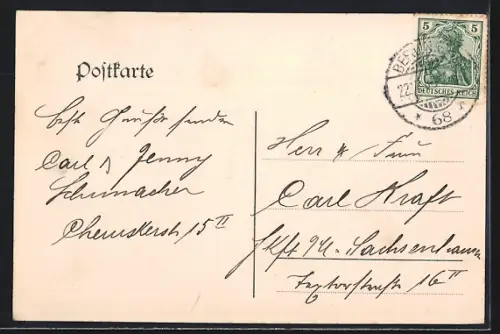 Postkarte
5 5
DEUTSCHES REICH
BERLIN
22.
* 68
beste Grüße senden
Carl & Jenny
Schumacher
Cheruskerst 15 II
Herr & Frau
Carl Kraft
Fkft a/M - Sachsenhausen
Textorstraße 16 II